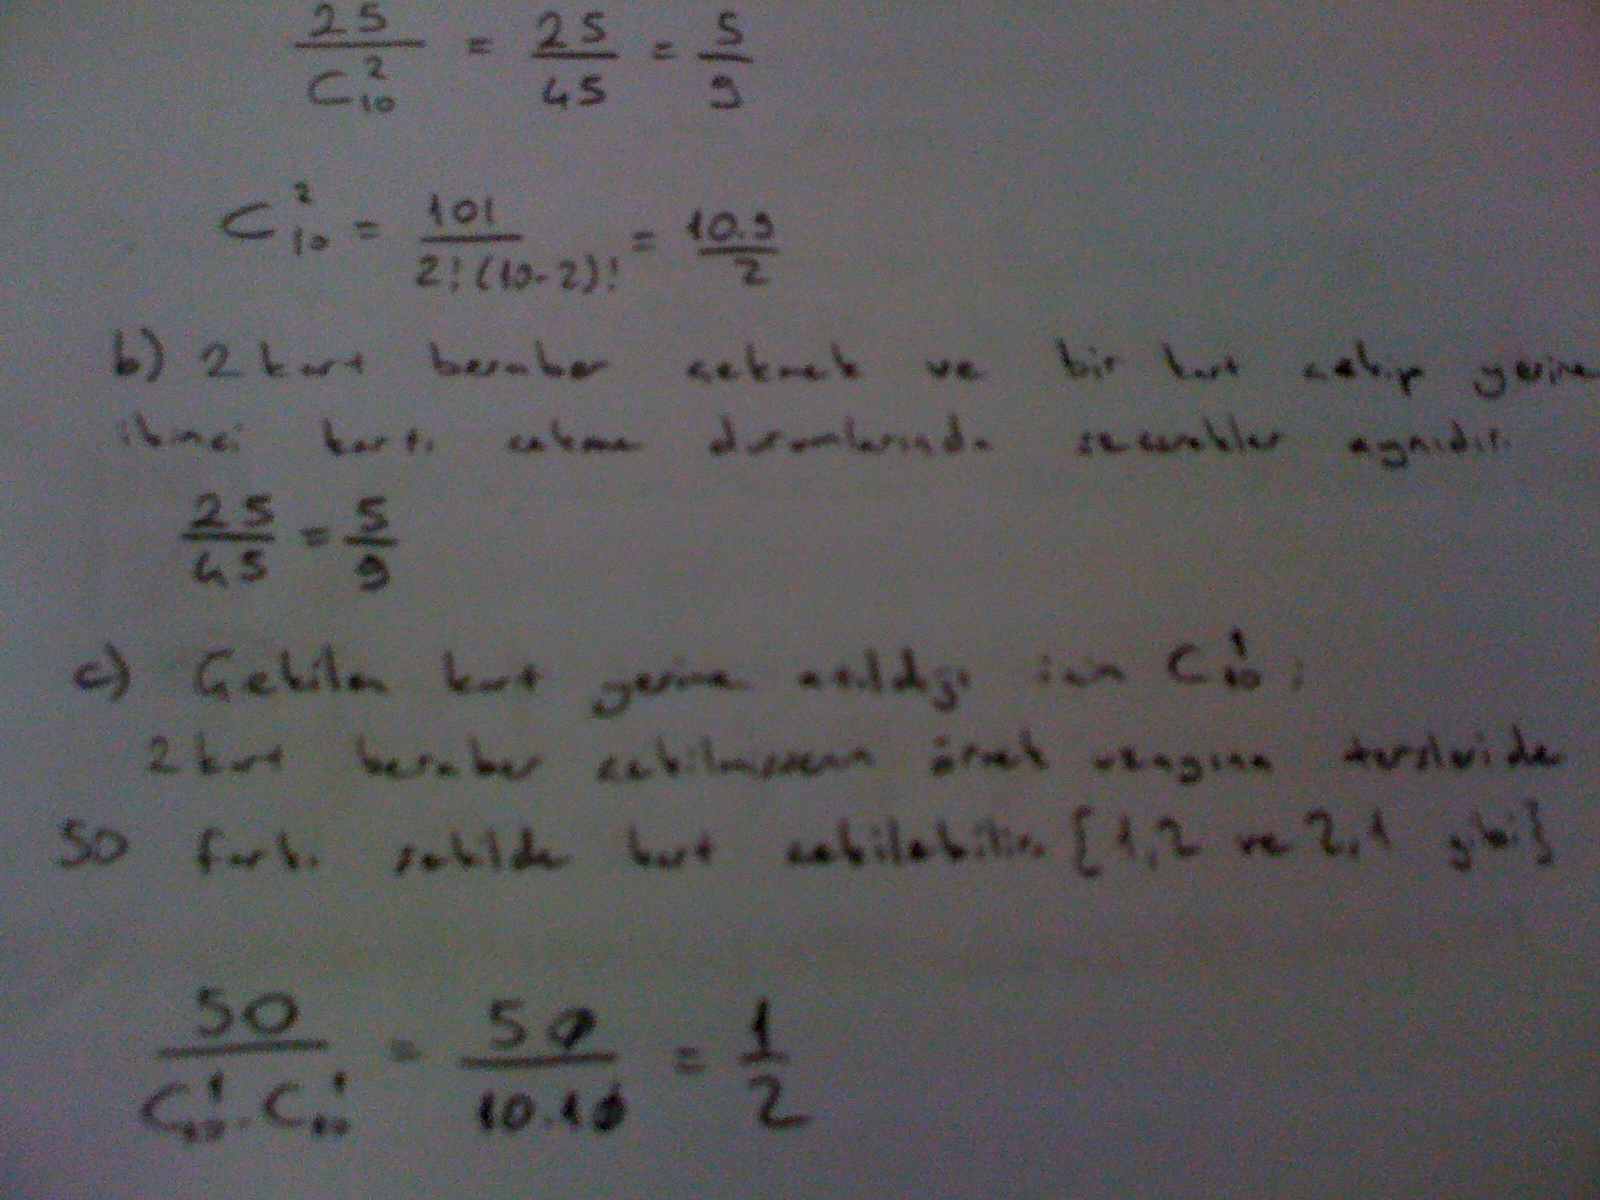 25/C₁₀² = 25/45 = 5/9
C₁₀² = 10!/2!(10-2)! = 10.9/2
b) 2 kart beraber çekmek ve bir kart çekip yerine
ikinci kartı çekme durumlarında seçenekler aynıdır.
25/45 = 5/9
c) Çekilen kart yerine atıldığı için C₁₀¹ ;
2 kart beraber çekilmişse örnek uzayına terslerinde
50 farklı şekilde kart çekilebilir. {1,2 ve 2,1 gibi}
50/C₁₀¹.C₁₀¹ = 50/10.10 = 1/2